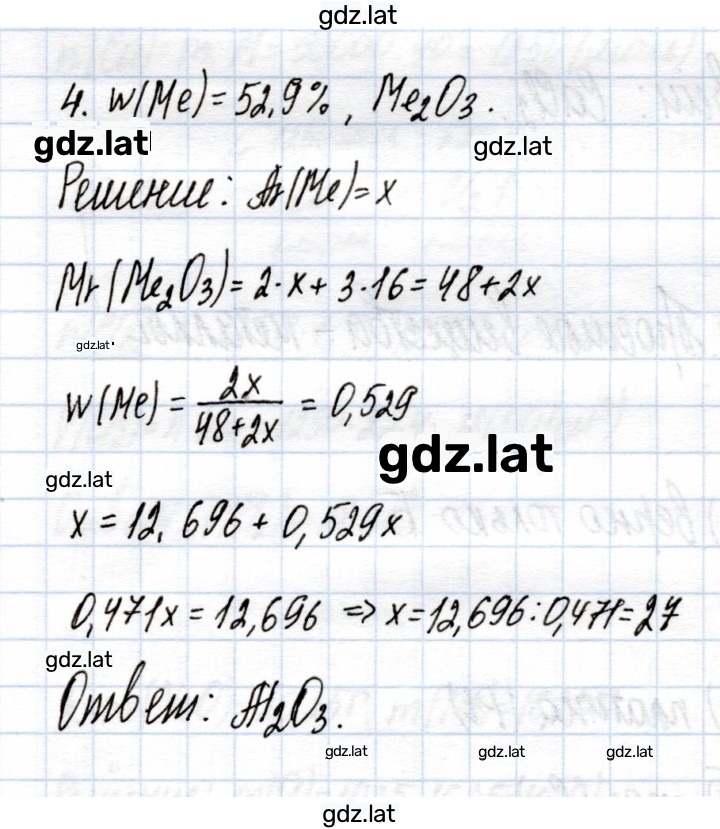 gdz.lat
4. w(Me) = 52,9%, Me₂O₃.
gdz.lat
gdz.lat
Решение: Ar(Me) = x
Mr(Me₂O₃) = 2·x + 3·16 = 48 + 2x
gdz.lat
w(Me) = 2x/(48+2x) = 0,529
gdz.lat
gdz.lat
x = 12,696 + 0,529x
0,471x = 12,696 => x = 12,696 : 0,471 = 27
gdz.lat
Ответ: Al₂O₃.
gdz.lat gdz.lat gdz.lat
gdz.lat